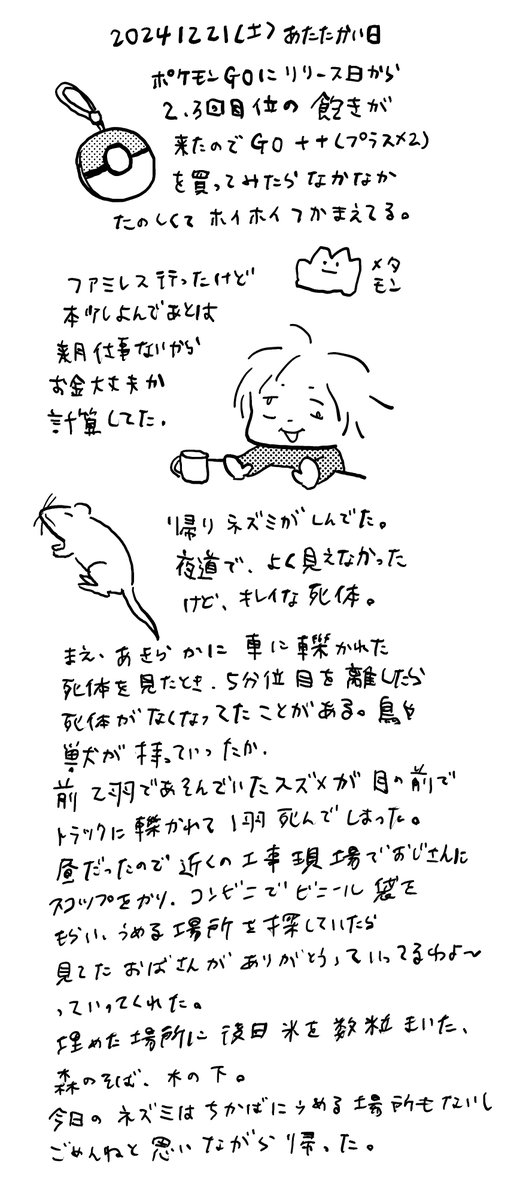 20241221(土) あたたかい日
ポケモンGOにリリース日から
2.3回目位の 飽きが
来たのでGO ++(プラス×2)
を買ってみたら なかなか
たのしくて ホイホイ つかまえてる。
メタ
モン
ファミレス行ったけど
本少しよんであとは
来月仕事ないから
お金大丈夫か
計算してた.
帰り ネズミがしんでた。
夜道で、よく見えなかった
けど、キレイな死体。
まえ、あきらかに 車に轢かれた
死体を見たとき、5分位目を離したら
死体がなくなってたことがある。鳥や
獣犬が 持っていったか.
前 2羽であそんでいたスズメが 目の前で
トラックに轢かれて 1羽 死んでしまった。
昼だったので 近くの工事現場でおじさんに
スコップをかり、コンビニでビニール袋を
もらい、うめる場所を探していたら
見てた おばさんが ありがとうっていってるわよ〜
っていってくれた。
埋めた場所に 後日 米を数粒まいた、
森のそば、木の下。
今日の ネズミはちかばにうめる場所もないし
ごめんねと思いながら帰った。